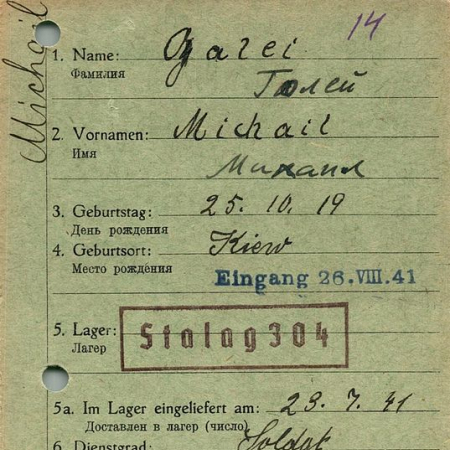 14
Michail
1. Name: Galei
Фамилия Голей
2. Vornamen: Michail
Имя Михаил
3. Geburtstag: 25. 10. 19
День рождения
4. Geburtsort: Kiew
Место рождения
Eingang 26.VIII.41
5. Lager: Stalag 304
Лагерь
5a. Im Lager eingeliefert am: 23. 7. 41
Доставлен в лагерь (число)
6. Dienstgrad: Soldat